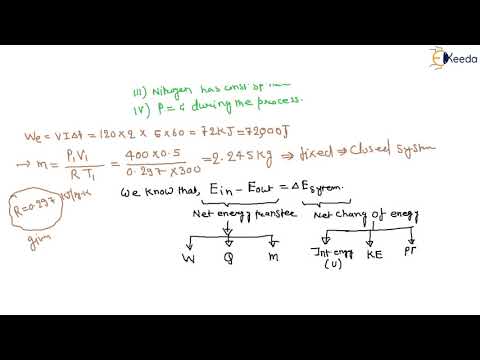 Ekeeda
III) Nitrogen has const sp
IV) P = c during the process.
We = VIΔt = 120×2 × 5×60 = 72KJ = 72000J
→ m = P₁V₁ / R T₁ = 400×0.5 / 0.297×300 = 2.245kg ⇒ fixed ⇒ Closed system
R=0.297 KJ/kg·K
given
We know that, Ein - Eout = ΔE system.
Net energy transfer Net chang of energy
W Q m Int engy (U) KE PE